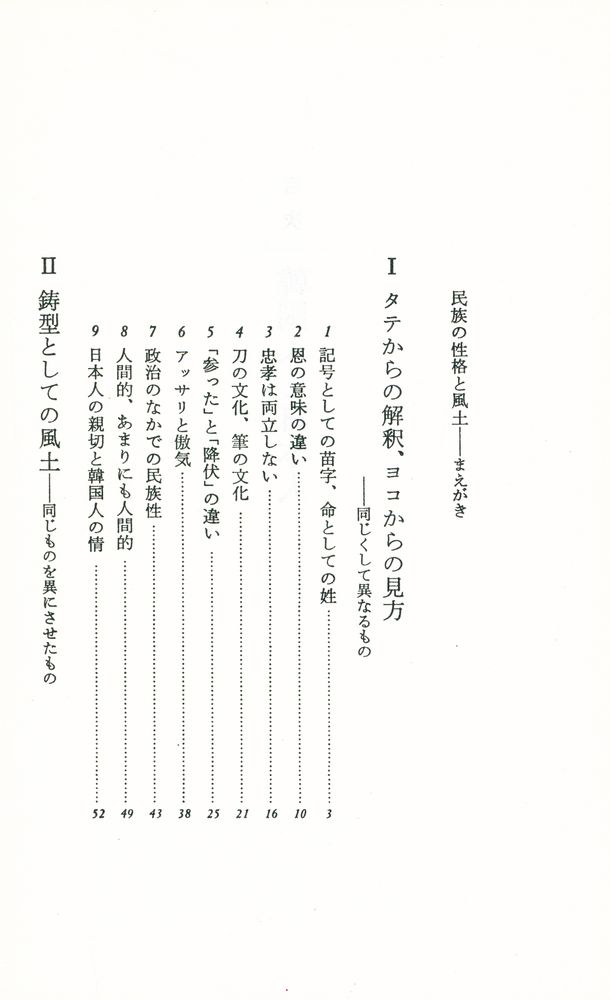 民族の性格と風土──まえがき
Ⅰ タテからの解釈、ヨコからの見方
──同じくして異なるもの
1 記号としての苗字、命としての姓……3
2 恩の意味の違い……10
3 忠孝は両立しない……16
4 刀の文化、筆の文化……21
5 「参った」と「降伏」の違い……25
6 アッサリと傲気……38
7 政治のなかでの民族性……43
8 人間的、あまりにも人間的……49
9 日本人の親切と韓国人の情……52
Ⅱ 鋳型としての風土──同じものを異にさせたもの